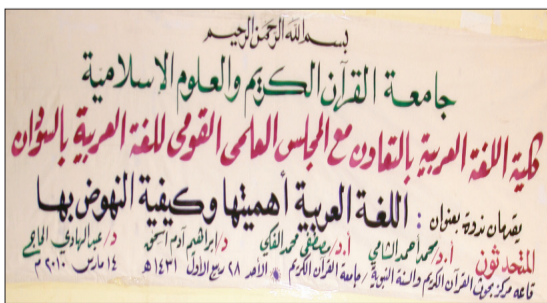 بسم الله الرحمن الرحيم
جامعة القرآن الكريم والعلوم الاسلامية
كلية اللغة العربية بالتعاون مع المجلس العلمى القومى للغة العربية بالسودان
يقيمان ندوة بعنوان : اللغة العربية أهميتها وكيفية النهوض بها
المتحدثون أ.د/ محمد احمد الشامي أ.د/ مصطفى محمد الفكي د/ إبراهيم آدم اسحق د/ عبد الهادي
قاعة مركز بحوث القرآن الكريم والسنة النبوية / جامعة القرآن الكريم الأحد ٢٨ ربيع الاول ١٤٣١ ه ١٤ مارس ٢٠١٠ م